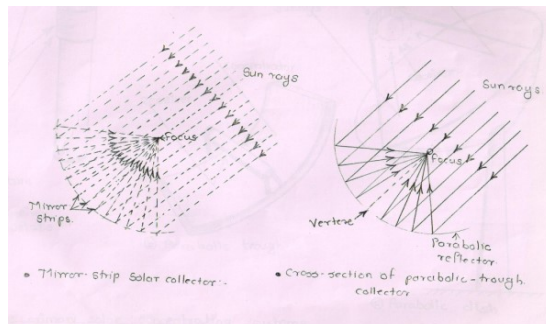 Sun rays
Focus
Mirror
strips.
• Mirror-strip Solar collector.
Sun rays
Focus
Vertex
Parabolic
reflector.
• Cross-section of parabolic-trough
collector